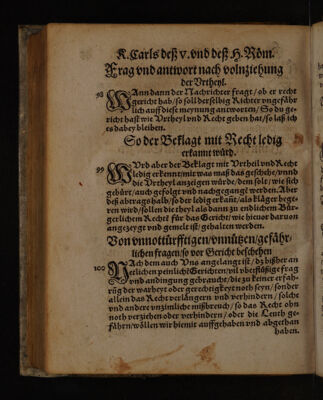 K. Carls deß v. vnd deß H. Röm.
Frag vnd antwort nach volnziehung
der Vrtheyl.
98 WAnn dann der Nachrichter fragt/ ob er recht
gericht hab/ so soll derselbig Richter vngefähr
lich auff diese meynung antworten/ So du ge-
richt hast wie Vrtheyl vnd Recht geben hat/ so laß ich
es dabey bleiben.
So der Beklagt mit Recht ledig
erkannt würd.
99 WUrd aber der Beklagt mit Vrtheil vnd Recht
ledig erkennt/ mit was maß das geschehe/ vnnd
die Vrtheyl anzeigen würde/ dem solt/ wie sich
gebürt/ auch gefolgt vnd nachgegangt werden. Aber
deß abtrags halb/ so der ledig erkañt/ als kläger bege-
ren wird/ sollen die theyl als dann zu endlichem Bür-
gerlichem Rechte͂ für das Gericht/ wie hieuor daruon
angezeygt vnd gemelt ist/ gehalten werden.
Von vnnottürfftigen/ vnnützen/ gefähr-
lichen fragen/ so vor Gericht beschehen
100 NAch dem auch Vns angelangt ist/ dz bißher an
etlichen peinlichē Gerichten/ vil vberflüßige frag
vnd andingung gebraucht/ die zu keiner erfa-
rūg der warheyt oder gerechtigkeyt noth seyn/ sonder
allein das Recht verlängern vnd verhindern/ solche
vnd andere vnzimliche mißbreuch/ so das Recht ohn
noth verziehen oder verhindern/ oder die Leuth ge-
fährn/ wöllen wir hiemit auffgehaben vnd abgethan
haben.